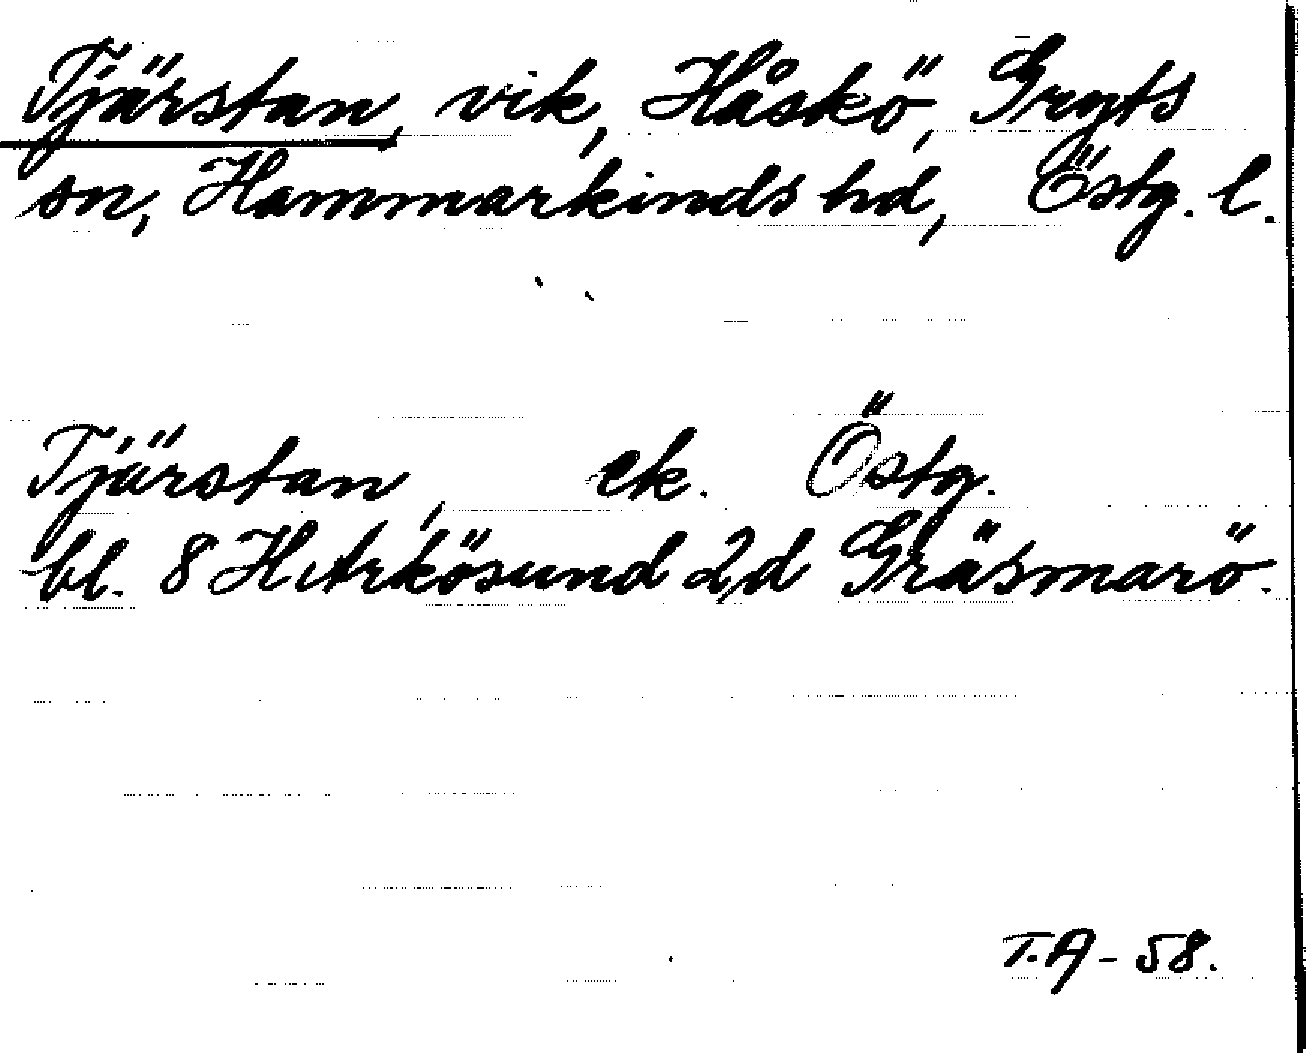 Tjärstan, vik, Håskö, Gryts
sn, Hammarkinds hd, Östg. l.
Tjärstan, ek. Östg.
bl. 8 H Arkösund 2,d Gräsmarö.
T.A - 58.